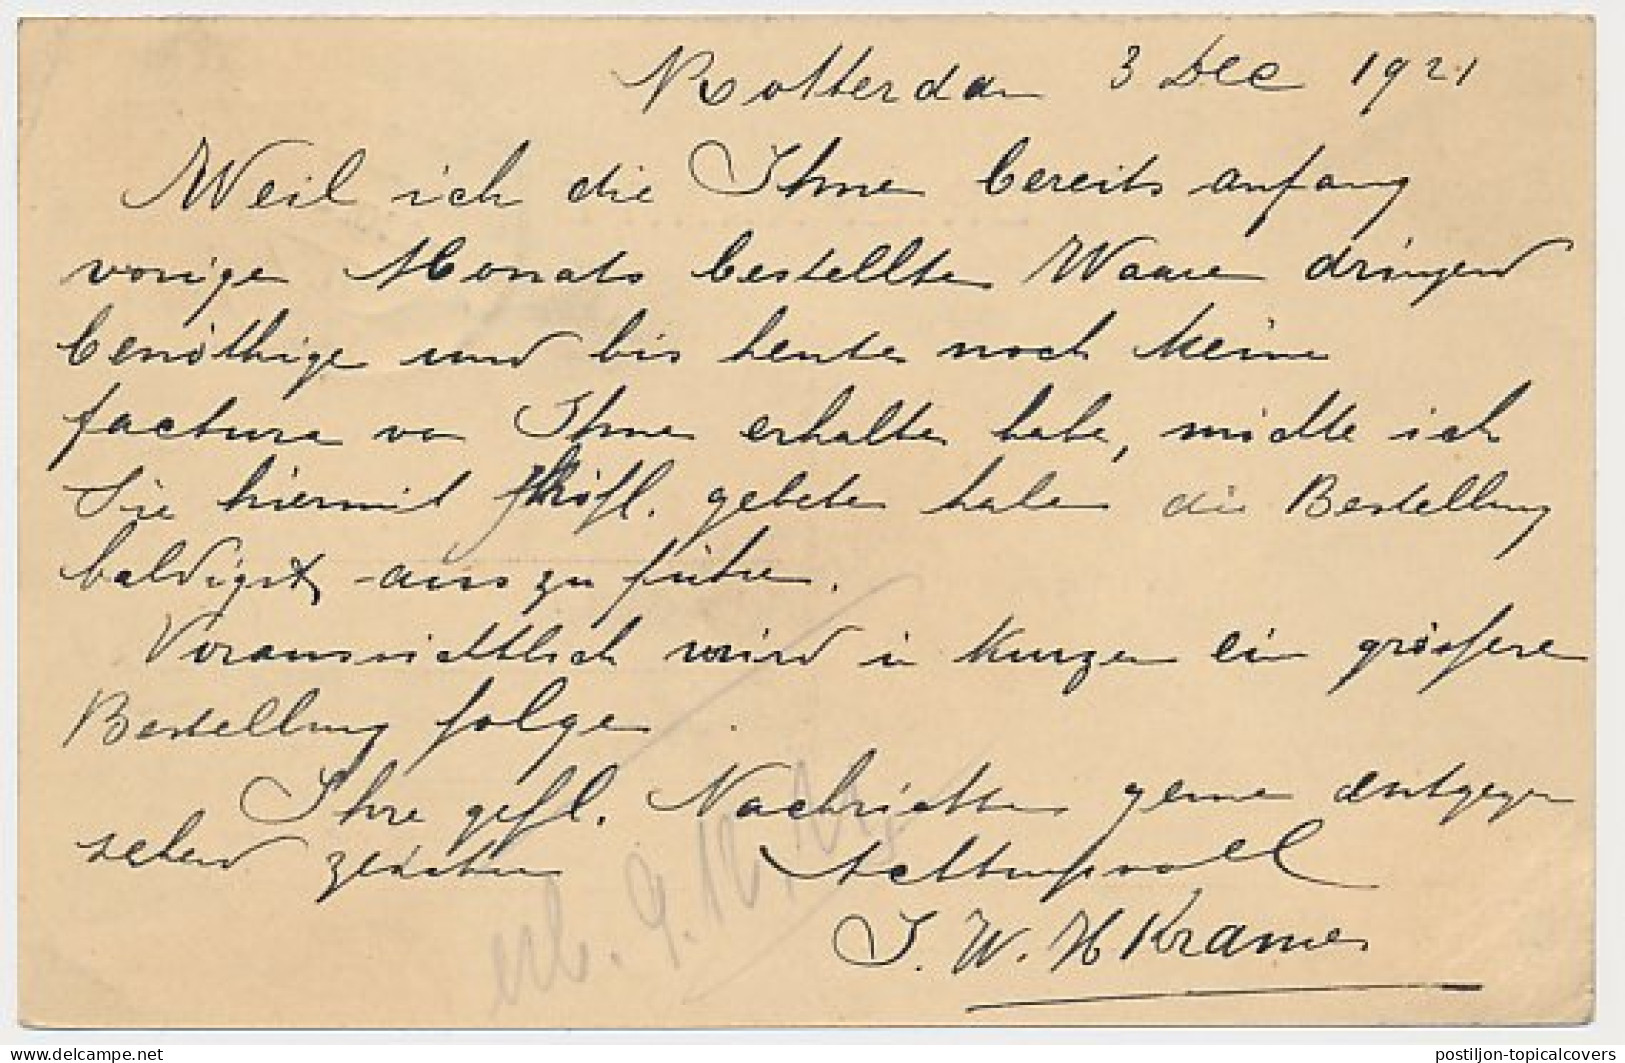 Rotterdam 3 Dec 1921
Weil ich die Ihnen bereits anfang
vorigen Monats bestellten Waaren dringend
benöthige und bis heute noch keine
factura von Ihnen erhalten habe, möchte ich
Sie hiermit höfl. gebeten haben die Bestellung
baldigst aus zu führen.
Voraussichtlich wird in Kurzen ein grössere
Bestellung folgen.
Ihre gefl. Nachrichten gerne entgegen
sehend zeichne Achtungsvoll
J. W. H Kramer
erl. 9.12.21
postiljon-topicalcovers
www.delcampe.net